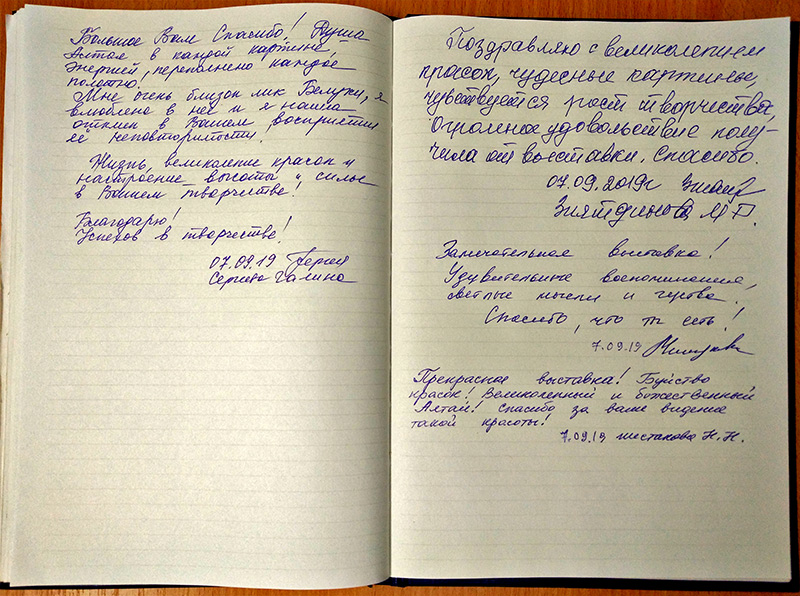 Большое Вам Спасибо! Душа
Алтая в каждой картине,
Энергией, переполнено каждое
полотно.
Мне очень близок лик Белухи, я
влюблена в неё и я нашла
отклик в Вашем восприятии
её неповторимости.
Жизнь, великолепие красок и
настроение высоты и силы
в Вашем творчестве!
Благодарю!
Успехов в творчестве!
07.09.19
Галина
Поздравляю с великолепием
красок, чудесные картины,
чувствуется рост творчества,
Огромное удовольствие полу-
чила от выставки. Спасибо.
07.09.2019г
Зиятдинова М.Г.
Замечательная выставка!
Удивительные воспоминания,
светлые мысли и чувства.
Спасибо, что ты есть!
7.09.19
Прекрасная выставка! Буйство
красок! Великолепный и божественный
Алтай! Спасибо за ваше видение
такой красоты!
7.09.19 Шестакова Н.Н.